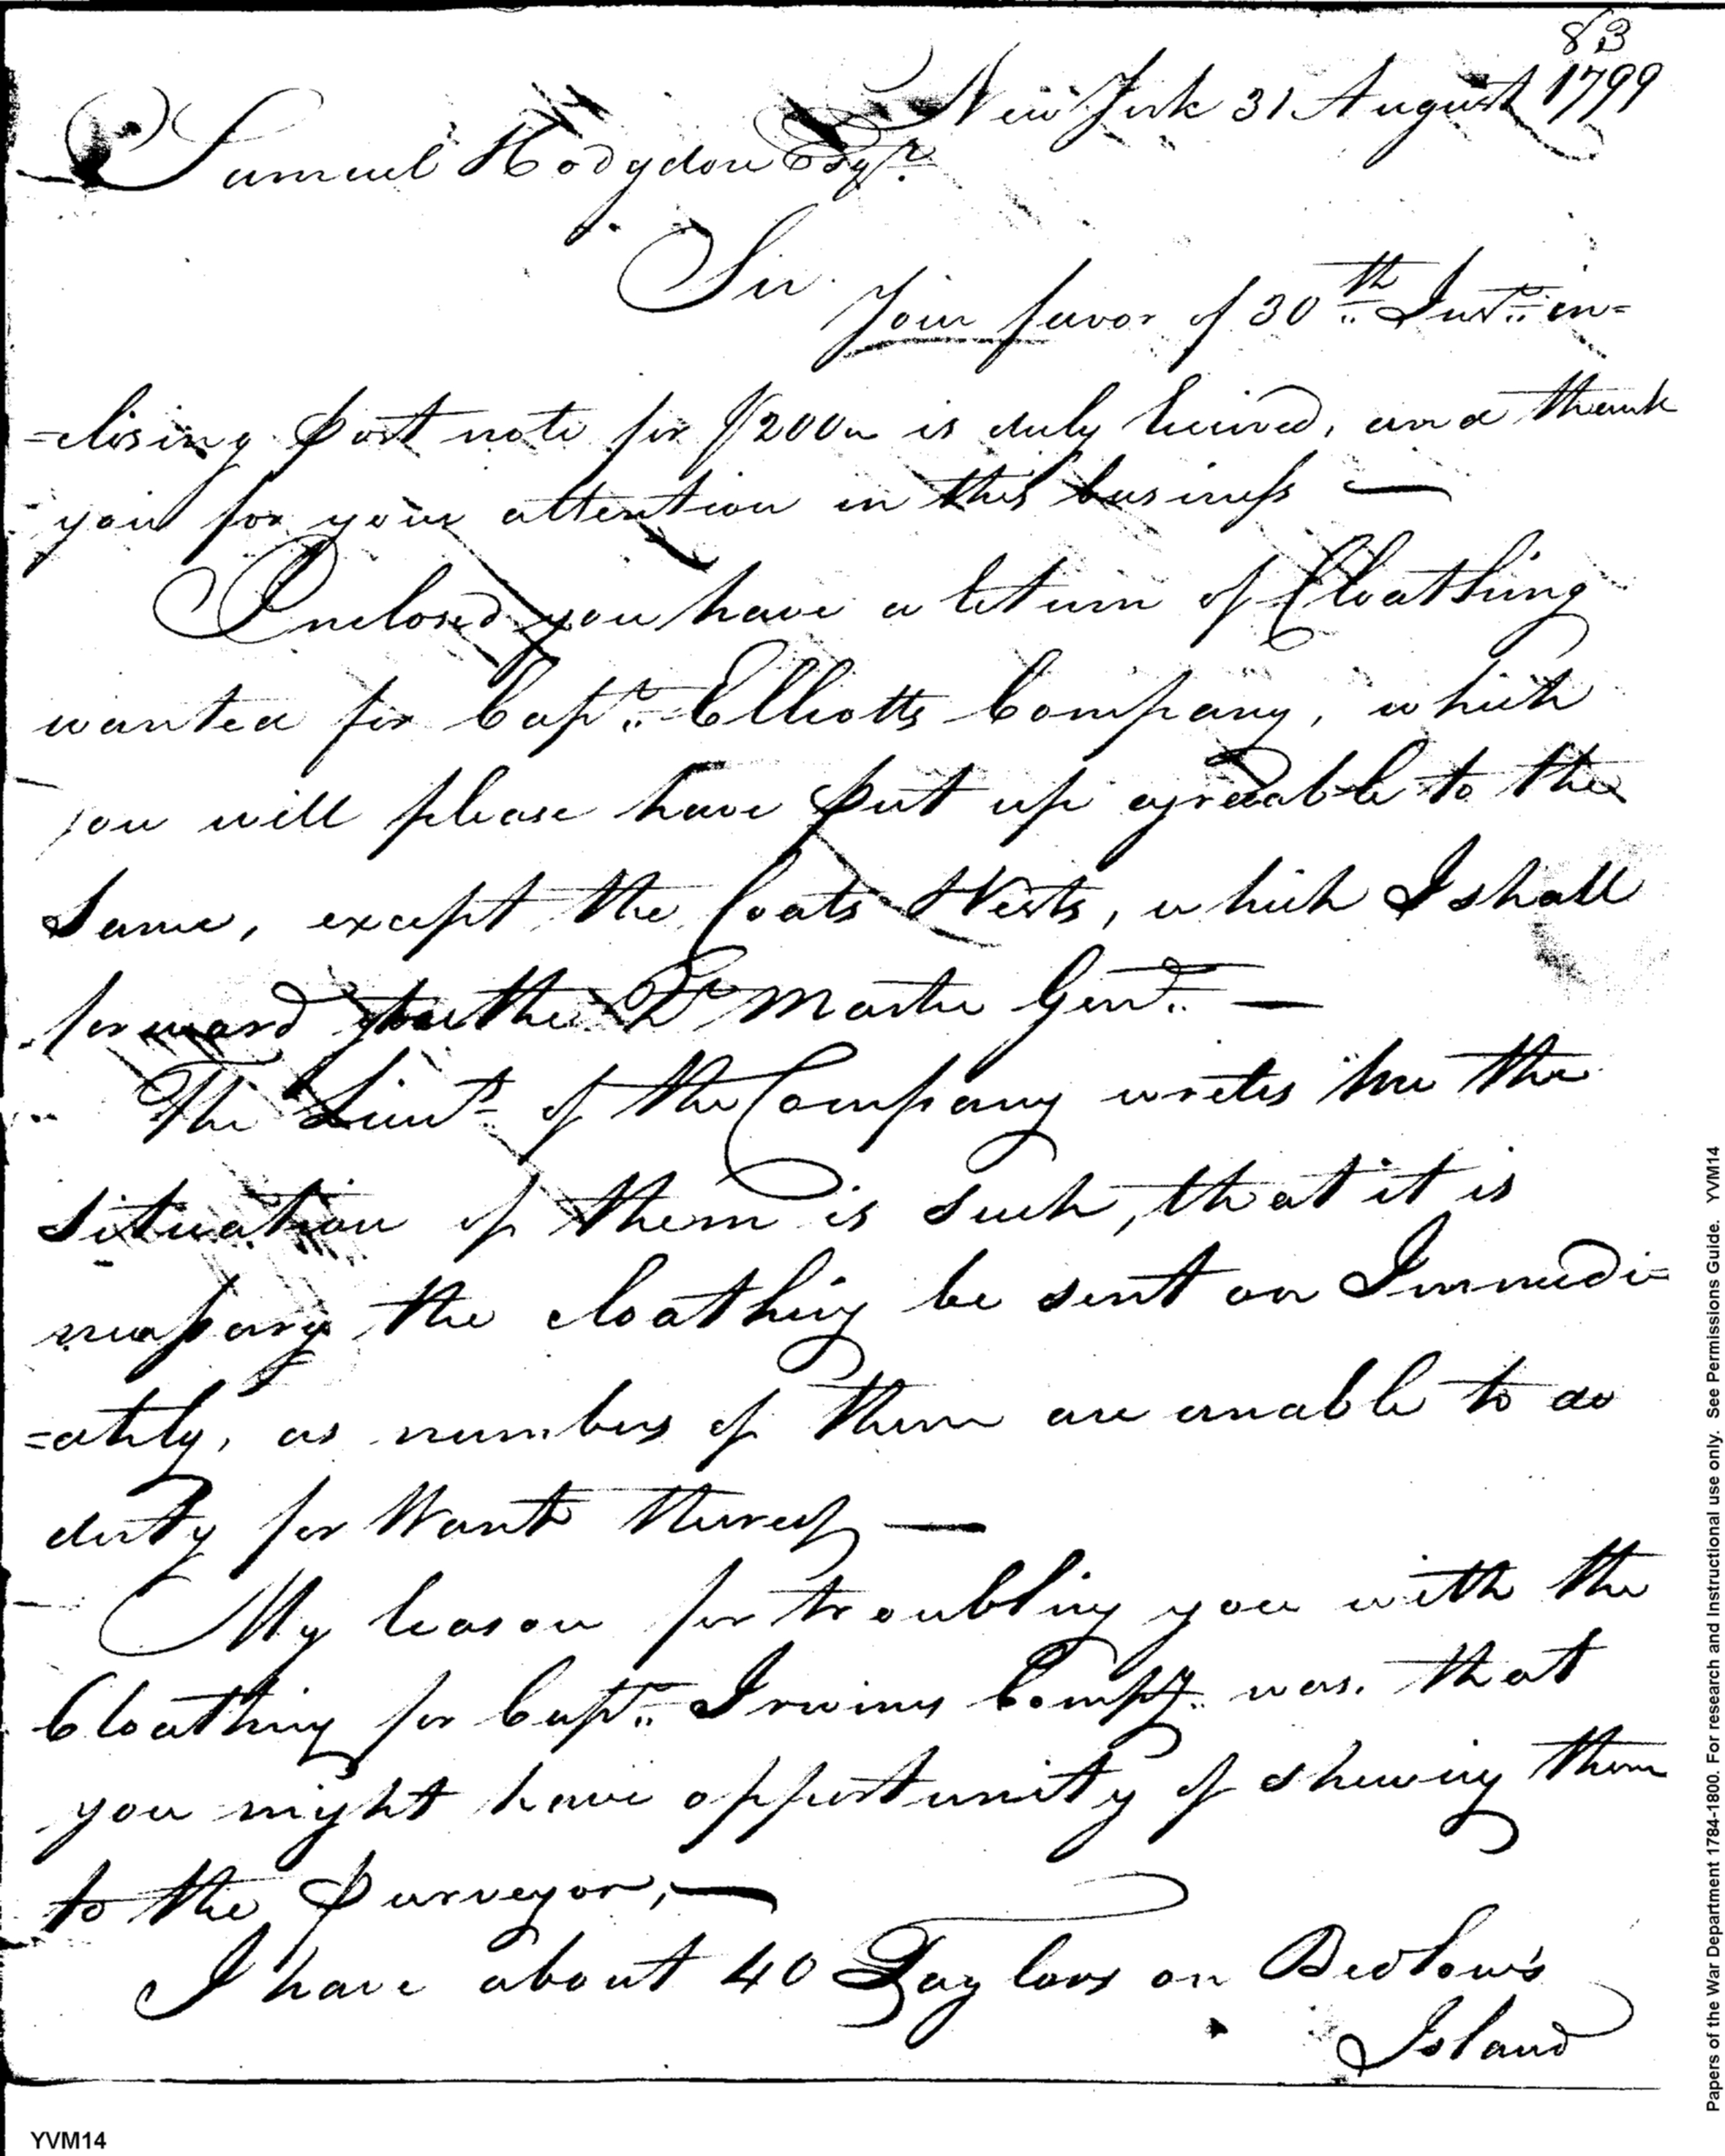 83
New York 31 August 1799
Samuel Hodgdon Esqr.
Sir.
Your favor of 30th Inst. en=
=closing post note for $200 is duly recived, and thank
you for your attention in this business —
Enclosed you have a return of Cloathing
wanted for Capt. Elliotts Company, which
you will please have put up agreeable to the
same, except the Coats & Vests, which I shall
forward the Qr Master Genl. —
The Lieut. of the Company writes me the
situation of them is such, that it is
necessary the cloathing be sent on Immedi=
=ately, as numbers of them are unable to do
duty for want thereof —
My reason for troubling you with the
Cloathing for Capt. Irwins Compy. was. that
you might have opportunity of shewing them
to the Purveyor, —
I have about 40 Taylors on Bedlow's
Island
YVM14
Papers of the War Department 1784-1800. For research and Instructional use only. See Permissions Guide. YVM14